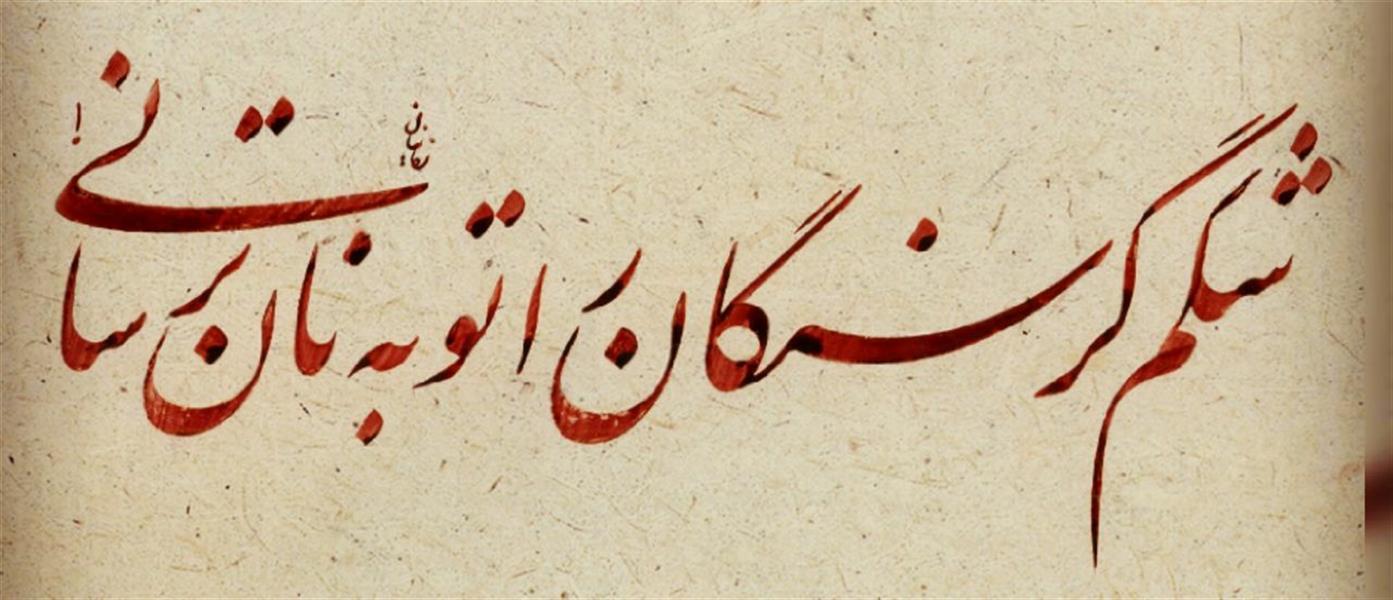 شکم گرسنگان را تو به نان برسانی !